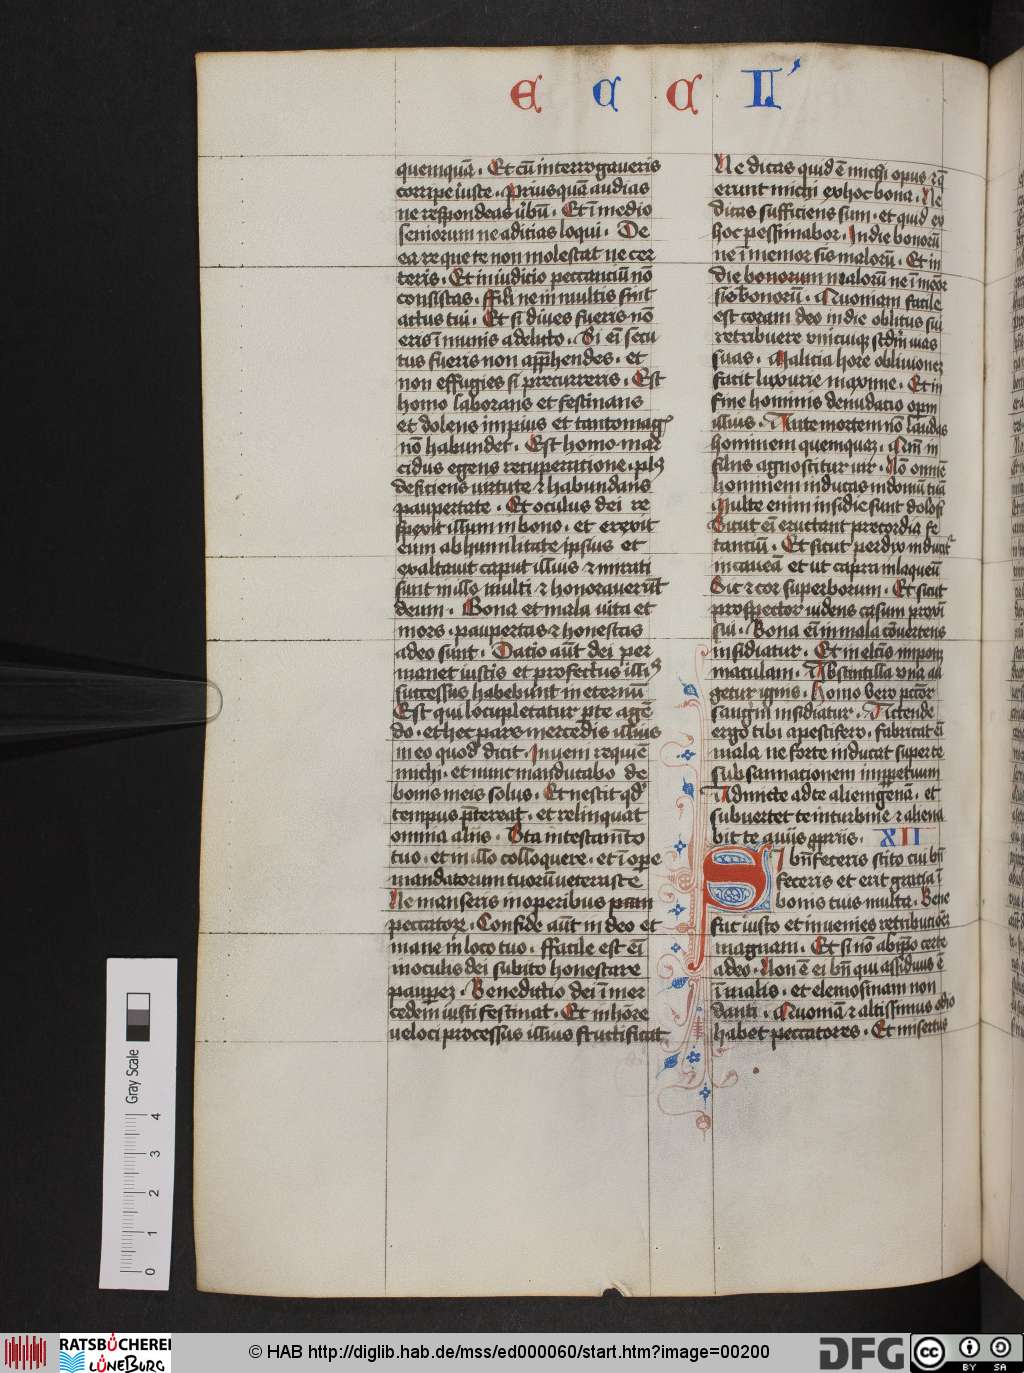 E C C LI
quemquā . Et cū interrogaveris
corripe iuste . Priusquā audias
ne respondeas ūbū . Et ī medio
seniorum ne adicias loqui . De
ea re que te non molestat ne cer
teris . Et in iudicio peccanciū nō
consistas . ffili ne in multis sint
actus tui . Et si dives fueris nō
eris ī munis a delicto . Si eī secu
tus fueris non app̄hendes . et
non effugies si precurreris . Est
homo laborans et festinans
et dolens impius et tantomag9
nō habundet . Est homo mar
cidus egens recuperatione . pl9
deficiens virtute ⁊ habundans
paupertate . Et oculus dei re
spexit illum in bono . et erexit
eum ab humilitate ipsius et
exaltauit caput illius ⁊ mirati
sunt in illo multi ⁊ honorauerūt
deum . Bona et mala uita et
mors . paupertas ⁊ honestas
a deo sunt . Datio aūt dei per
manet iustis et profectus illi9
successus habebunt in eternū
Est qui locupletatur p̄te agē
do . et hec pars mercedis illius
in eo quod dicit . Inueni requiē
michi . et nunc manducabo de
bonis meis solus . Et nescit qd
tempus p̄tereat . et relinquat
omnia aliis . Sta in testamēto
tuo . et in illo colloquere . et ī ope
mandatorum tuorū veterasce
Ne manseris in operibus
peccatorz . Confide aūt in deo et
mane in loco tuo . ffacile est eī
in oculis dei subito honestare
paup̄ez . Benedictio dei ī mer
cedem iusti festinat . Et in hore
veloci processus illius fructificat
Ne dicas quid ē michi opus ⁊ q̄
erunt michi ex hoc bona . Ne
dicas sufficiens sum . et quid ex
hoc pessimabor . In die bonorū
ne ī memor sis malorū . Et in
die bonorum malorū ne ī meōr
sis bonorū . Quoniam facile
est coram deo in die oblitus sui
retribuere vnicuiq scdm uias
suas . Malicia hore obliuionez
facit luxurie maxime . Et in
fine hominis denudatio opm
illius . Ante mortem nō laudas
hominem quemquez . Qm in
filiis agnoscitur uir . Nō omnē
hominem inducas in domū tuā
Multe enim insidie sunt dolosi
Sicut eī eructant precordia fe
tanciū . Et sicut perdix inducit
in caueā et ut capra in laqueū
Sic ⁊ cor superborum . Et sicut
prospector uidens casum proxi
sui . Bona eī in mala cōuertens
insidiatur . Et in elcis imponz
maculam . Ab scintilla vna au
getur ignis . Homo vero pctōr
sangni insidiatur . Attende
ergo tibi a pestifero . fabricat eī
mala ne forte inducat super te
subsannacionem imp̄petuum
Admitte ad te aliēigenā . et
subuertet te in turbine ⁊ aliena
bit te a uiis ppriis . XII
SI bn̄feceris scito cui bn̄
feceris et erit gracia ī
bonis tuis multa . Bene
fac iusto et inuenies retributiōez
magnam . Et si nō ab ipo certe
a deo . Non ē ei bn̄ qui assiduus ē
ī malis . et elemosinam non
danti . Quoniā ⁊ altissimus odio
habet peccatores . Et misertus
Gray Scale
0 1 2 3 4
RATSBÜCHEREI
LÜNEBURG
© HAB http://diglib.hab.de/mss/ed000060/start.htm?image=00200
DFG
cc BY SA